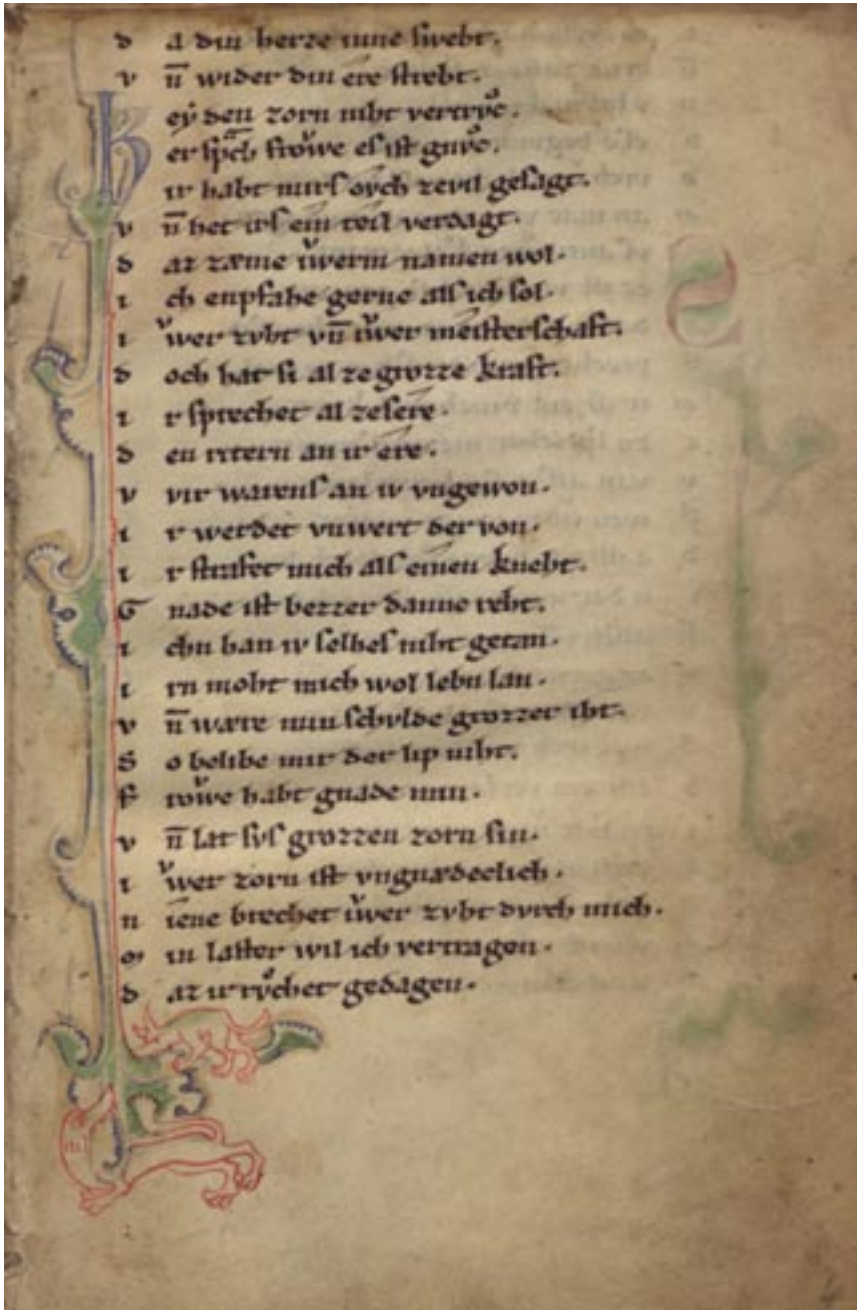 d a din herze inne ſwebt.
v n̄ wider din ere ſtrebt.
K eẏ den zorn niht vertrvͦc.
er ſpͣch froͮwe eſ iſt gnvͦc.
ir habt mirſ ovch zevil geſagt.
v n̄ het irſ ein teil verdagt.
d az zæme iͮwerm namen wol.
i ch enpfahe gerne alſ ich ſol.
i ͮwer zvht vn̄ iͮwer meiſterſchaft.
d och hat ſi al ze grozze kraft.
i r ſprechet al zeſere.
d en ritern an ir ere.
v vir warenſ an iv vngewon.
i r werdet vnwert der von.
i r ſtrafet mich alſ einen kneht.
G nade iſt bezzer danne reht.
i chn han iv ſelheſ niht getan.
i rn moht mich wol lebn lan.
v n̄ wære min ſchvlde grozzer iht.
S o belibe mir der lip niht.
F roͮwe habt gnade min.
v n̄ lat ſvſ grozzen zorn ſin.
i ͮwer zorn iſt vngnædeclich.
n iene brechet iͮwer zvht dvrch mich.
m in laſter wil ich vertragen.
d az ir rvͦchet gedagen.